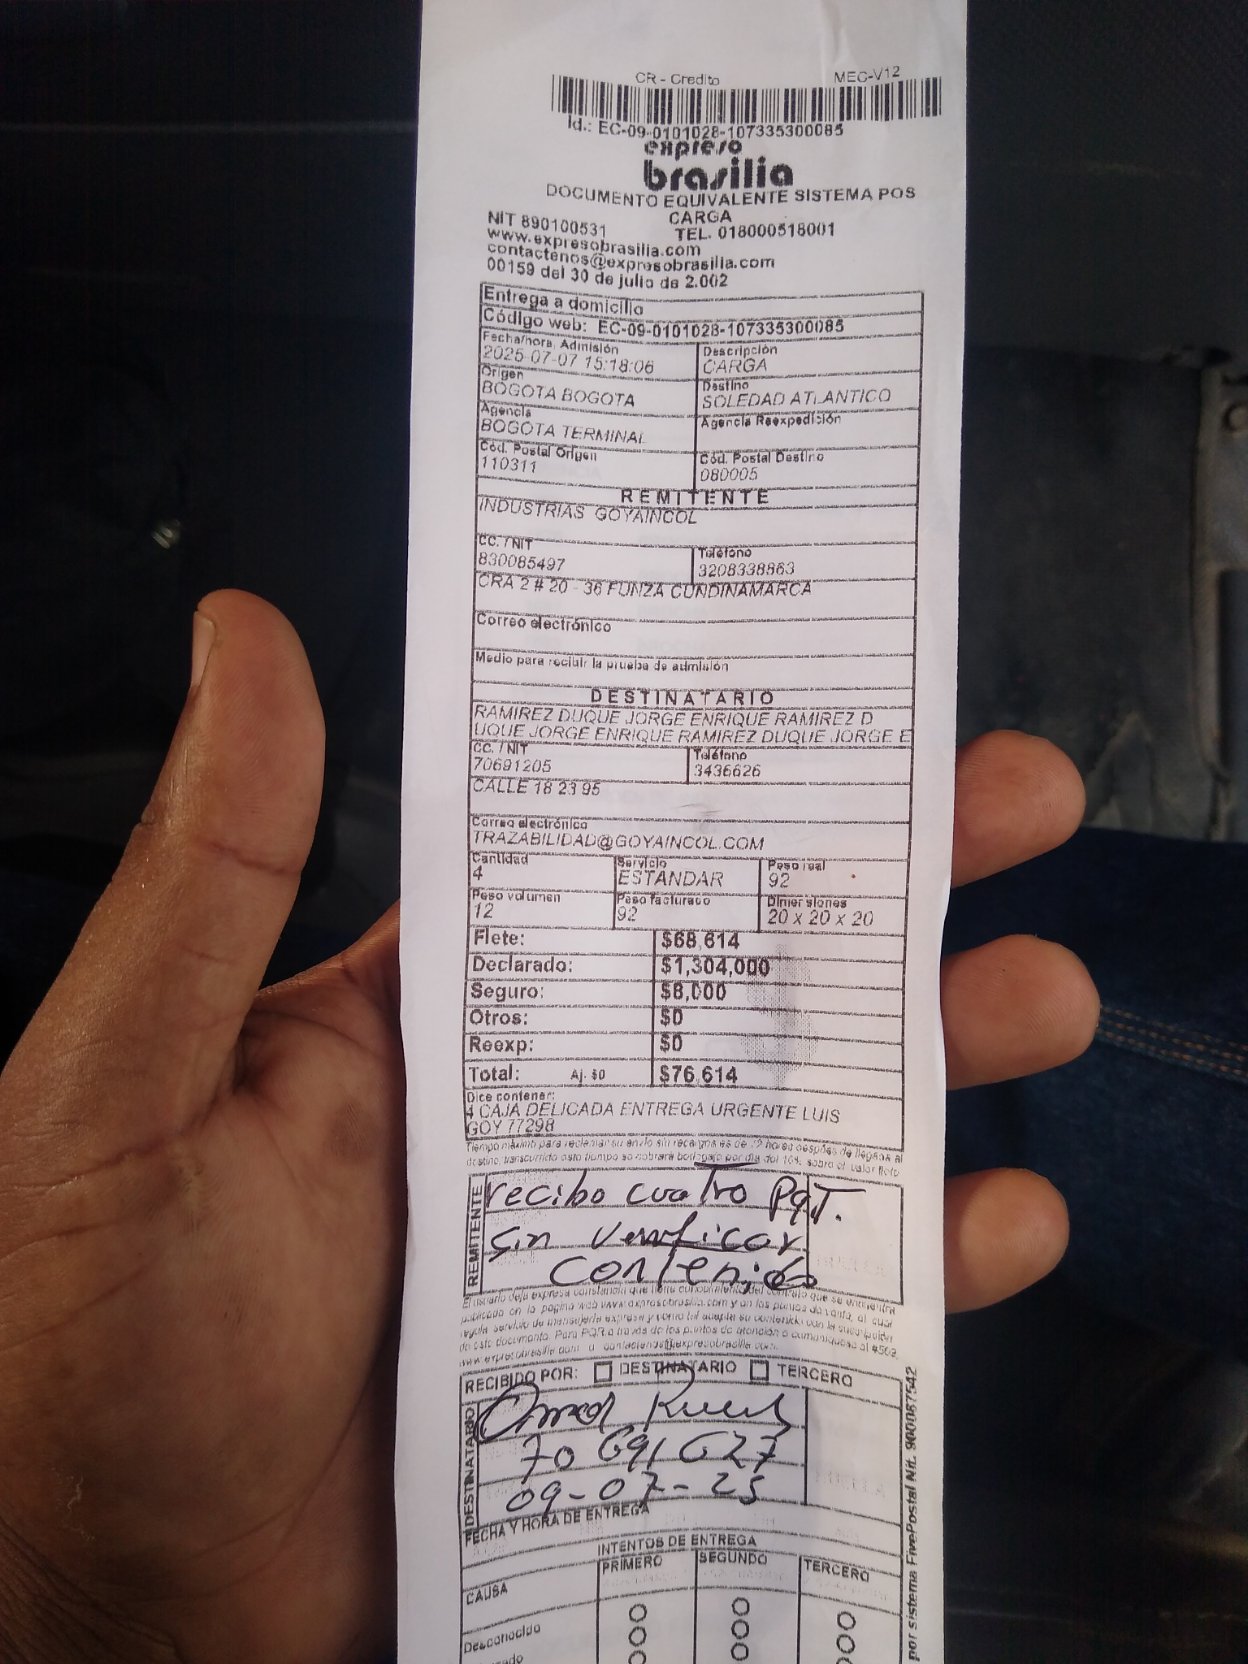 CR - Credito MEC-V12
Id.: EC-09-0101028-107335300085
expreso
brasilia
DOCUMENTO EQUIVALENTE SISTEMA POS
CARGA
NIT 890100531 TEL. 018000518001
www.expresobrasilia.com
contactenos@expresobrasilia.com
00159 del 30 de julio de 2.002
Entrega a domicilio
Código web: EC-09-0101028-107335300085
Fecha/hora, Admisión Descripción
2025-07-07 15:18:06 CARGA
Origen Destino
BOGOTA BOGOTA SOLEDAD ATLANTICO
Agencia Agencia Reexpedición
BOGOTA TERMINAL
Cód. Postal Origen Cód. Postal Destino
110311 080005
REMITENTE
INDUSTRIAS GOYAINCOL
CC. / NIT Teléfono
830085497 3208338863
CRA 2 # 20 - 36 FUNZA CUNDINAMARCA
Correo electrónico
Medio para recibir la prueba de admisión
DESTINATARIO
RAMIREZ DUQUE JORGE ENRIQUE RAMIREZ D
UQUE JORGE ENRIQUE RAMIREZ DUQUE JORGE E
CC. / NIT Teléfono
70691205 3436626
CALLE 18 23 95
Correo electrónico
TRAZABILIDAD@GOYAINCOL.COM
Cantidad Servicio Peso real
4 ESTANDAR 92
Peso volumen Peso facturado Dimensiones
12 92 20 x 20 x 20
Flete: $68,614
Declarado: $1,304,000
Seguro: $8,000
Otros: $0
Reexp: $0
Total: Aj. $0 $76,614
Dice contener:
4 CAJA DELICADA ENTREGA URGENTE LUIS
GOY 77298
Tiempo máximo para reclamar su envío sin recargos es de 72 horas después de llegada al
destino, transcurrido este tiempo se cobrará bodegaje por día del 10% sobre el valor flete
REMITENTE
recibo cuatro Pqt.
sin verificar
contenido
El usuario deja expresa constancia que tiene conocimiento del contrato que se encuentra
publicado en la página web www.expresobrasilia.com y en los puntos de venta, el cual
regula servicio de mensajería expresa y como tal acepta su contenido con la suscripción
de este documento. Para PQR a través de los puntos de atención o comuníquese al #502,
www.expresobrasilia.com o contactenos@expresobrasilia.com.
RECIBIDO POR: DESTINATARIO TERCERO
DESTINATARIO
70 691 627
09-07-25
FECHA Y HORA DE ENTREGA
INTENTOS DE ENTREGA
CAUSA PRIMERO SEGUNDO TERCERO
Desconocido
por sistema FivePostal Nit. 900087542